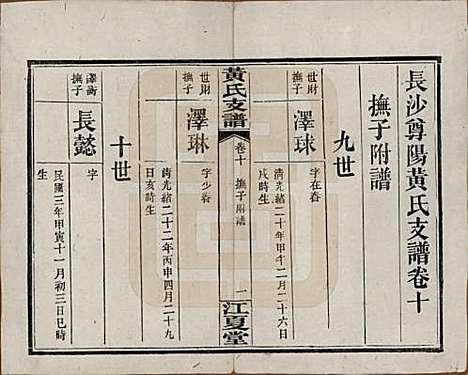 長沙尊陽黃氏支譜卷十
撫子附譜
九世
世財
撫子
澤球
字在春
清光緒二十年甲午二月二十六日
戌時生
黃氏支譜
卷十
撫子附譜
一
江夏堂
世財
撫子
澤琳
字少春
清光緒二十二年丙申四月二十九
日亥時生
十世
澤衡
撫子
長懿
字
民國三年甲寅十一月初三日巳時
生